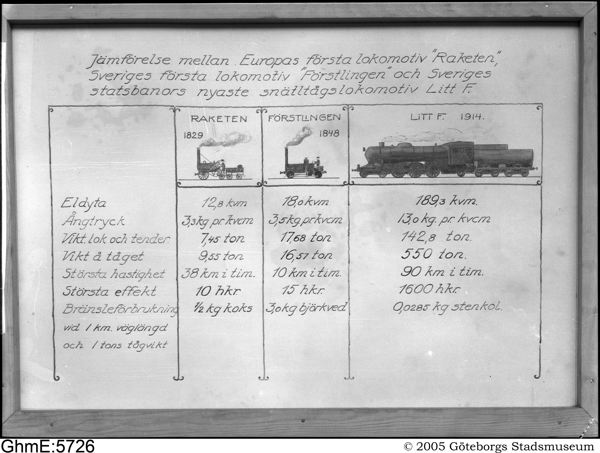 Jämförelse mellan Europas första lokomotiv "Raketen",
Sveriges första lokomotiv "Förstlingen" och Sveriges
statsbanors nyaste snälltågslokomotiv Litt F.
RAKETEN FÖRSTLINGEN LITT F. 1914.
1829 1848
Eldyta 12,8 kvm 18,0 kvm 189,3 kvm.
Ångtryck 3,3 kg. pr kvcm 3,5 kg. pr kvcm. 13,0 kg. pr kvcm
Vikt lok och tender 7,45 ton 17,68 ton 142,8 ton.
Vikt å tåget 9,55 ton 16,57 ton 550 ton.
Största hastighet 38 km i tim. 10 km i tim. 90 km i tim.
Största effekt 10 hkr 15 hkr. 1600 hkr.
Bränsleförbrukning ½ kg koks 3,0 kg björkved 0,0285 kg stenkol.
vid 1 km. väglängd
och 1 tons tågvikt
GhmE:5726 © 2005 Göteborgs Stadsmuseum